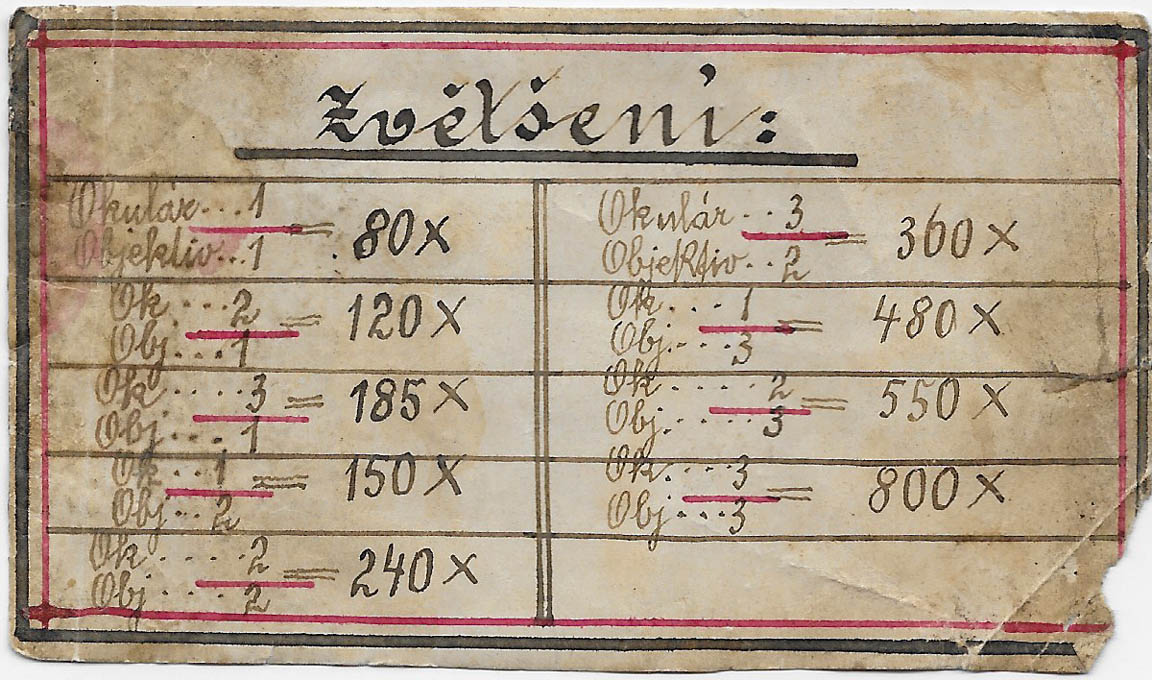 Zvětšení:
Okulár...1
Objektiv...1 = 80x
Ok....2
Obj...1 = 120x
Ok.....3
Obj....1 = 185x
Ok...1
Obj...2 = 150x
Ok.....2
Obj.....2 = 240x
Okulár..3
Objektiv..2 = 360x
Ok....1
Obj....3 = 480x
Ok.....2
Obj.....3 = 550x
Ok.....3
Obj....3 = 800x